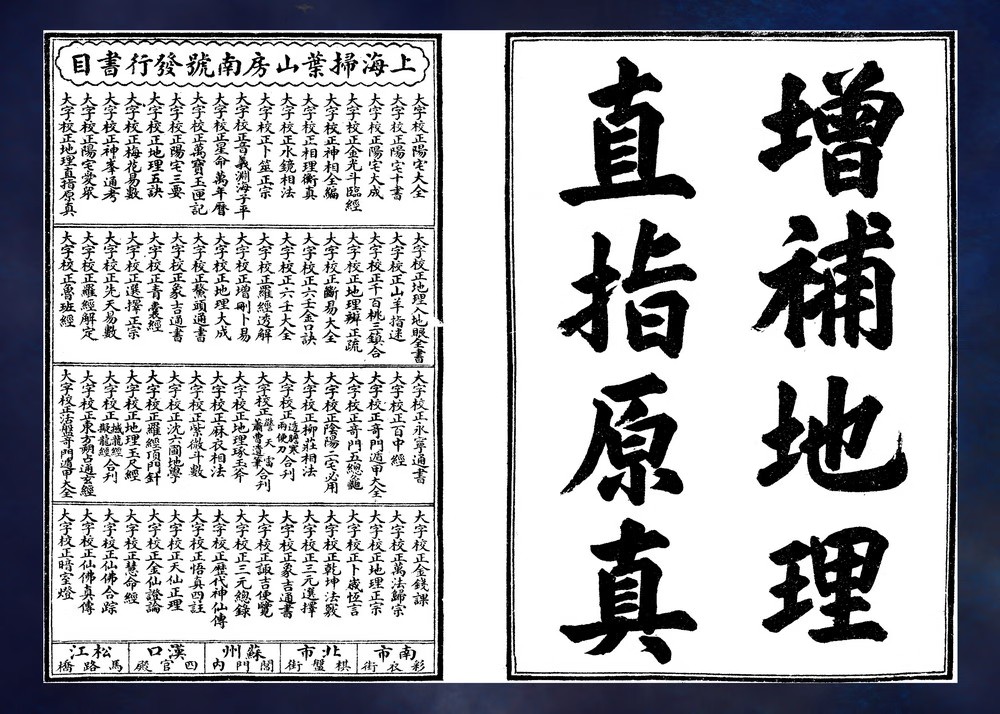 增補地理
直指原真
上海掃葉山房南號發行書目
大字校正陽宅大全
大字校正陽宅十書
大字校正陽宅大成
大字校正金光斗臨經
大字校正神相全編
大字校正相理衡真
大字校正水鏡相法
大字校正卜筮正宗
大字校正音義淵海子平
大字校正星命萬年曆
大字校正萬寶玉匣記
大字校正陽宅三要
大字校正地理五訣
大字校正梅花易數
大字校正神峯通考
大字校正陽宅愛衆
大字校正地理直指原真
大字校正地理入地眼全書
大字校正山羊指迷
大字校正千百桃三鎮合
大字校正地理辨正疏
大字校正斷易大全
大字校正六壬金口訣
大字校正六壬大全
大字校正羅經透解
大字校正增刪卜易
大字校正地理大成
大字校正鰲頭通書
大字校正象吉通書
大字校正青囊經
大字校正選擇正宗
大字校正先天易數
大字校正羅經解定
大字校正魯班經
大字校正永寧通書
大字校正百中經
大字校正奇門遁甲大全
大字校正奇門五總龜
大字校正陰陽二宅必用
大字校正柳莊相法
大字校正造膽寒雨便刀合刋
大字校正合刋
大字校正地理琢玉斧
大字校正麻衣相法
大字校正紫微斗數
大字校正沈六圃地學
大字校正羅經頂門針
大字校正地理玉尺經
大字校正撼龍經疑龍經合刋
大字校正東方朔占通玄經
大字校正法盤奇門遁甲大全
大字校正金錢課
大字校正萬法歸宗
大字校正地理正宗
大字校正卜歲恆言
大字校正乾坤法竅
大字校正三元選擇
大字校正象吉通書
大字校正諏吉便覽
大字校正三元總錄
大字校正歷代神仙傳
大字校正悟真四註
大字校正天仙正理
大字校正金仙證論
大字校正慧命經
大字校正仙佛合踪
大字校正仙佛真傳
大字校正暗室燈
南市彩衣街
北市棋盤街
蘇州閶門內
漢口四官殿
松江馬路橋